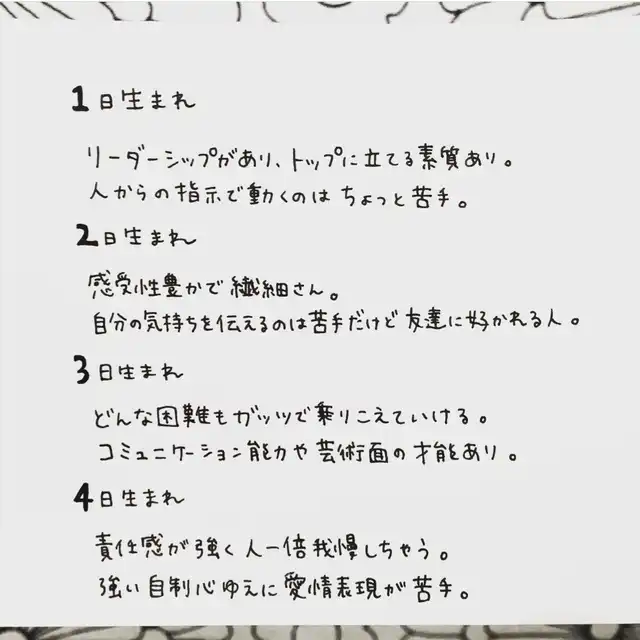 1日生まれ
リーダーシップがあり、トップに立てる素質あり。
人からの指示で動くのはちょっと苦手。
2日生まれ
感受性豊かで繊細さん。
自分の気持ちを伝えるのは苦手だけど友達に好かれる人。
3日生まれ
どんな困難もガッツで乗りこえていける。
コミュニケーション能力や芸術面の才能あり。
4日生まれ
責任感が強く人一倍我慢しちゃう。
強い自制心ゆえに愛情表現が苦手。